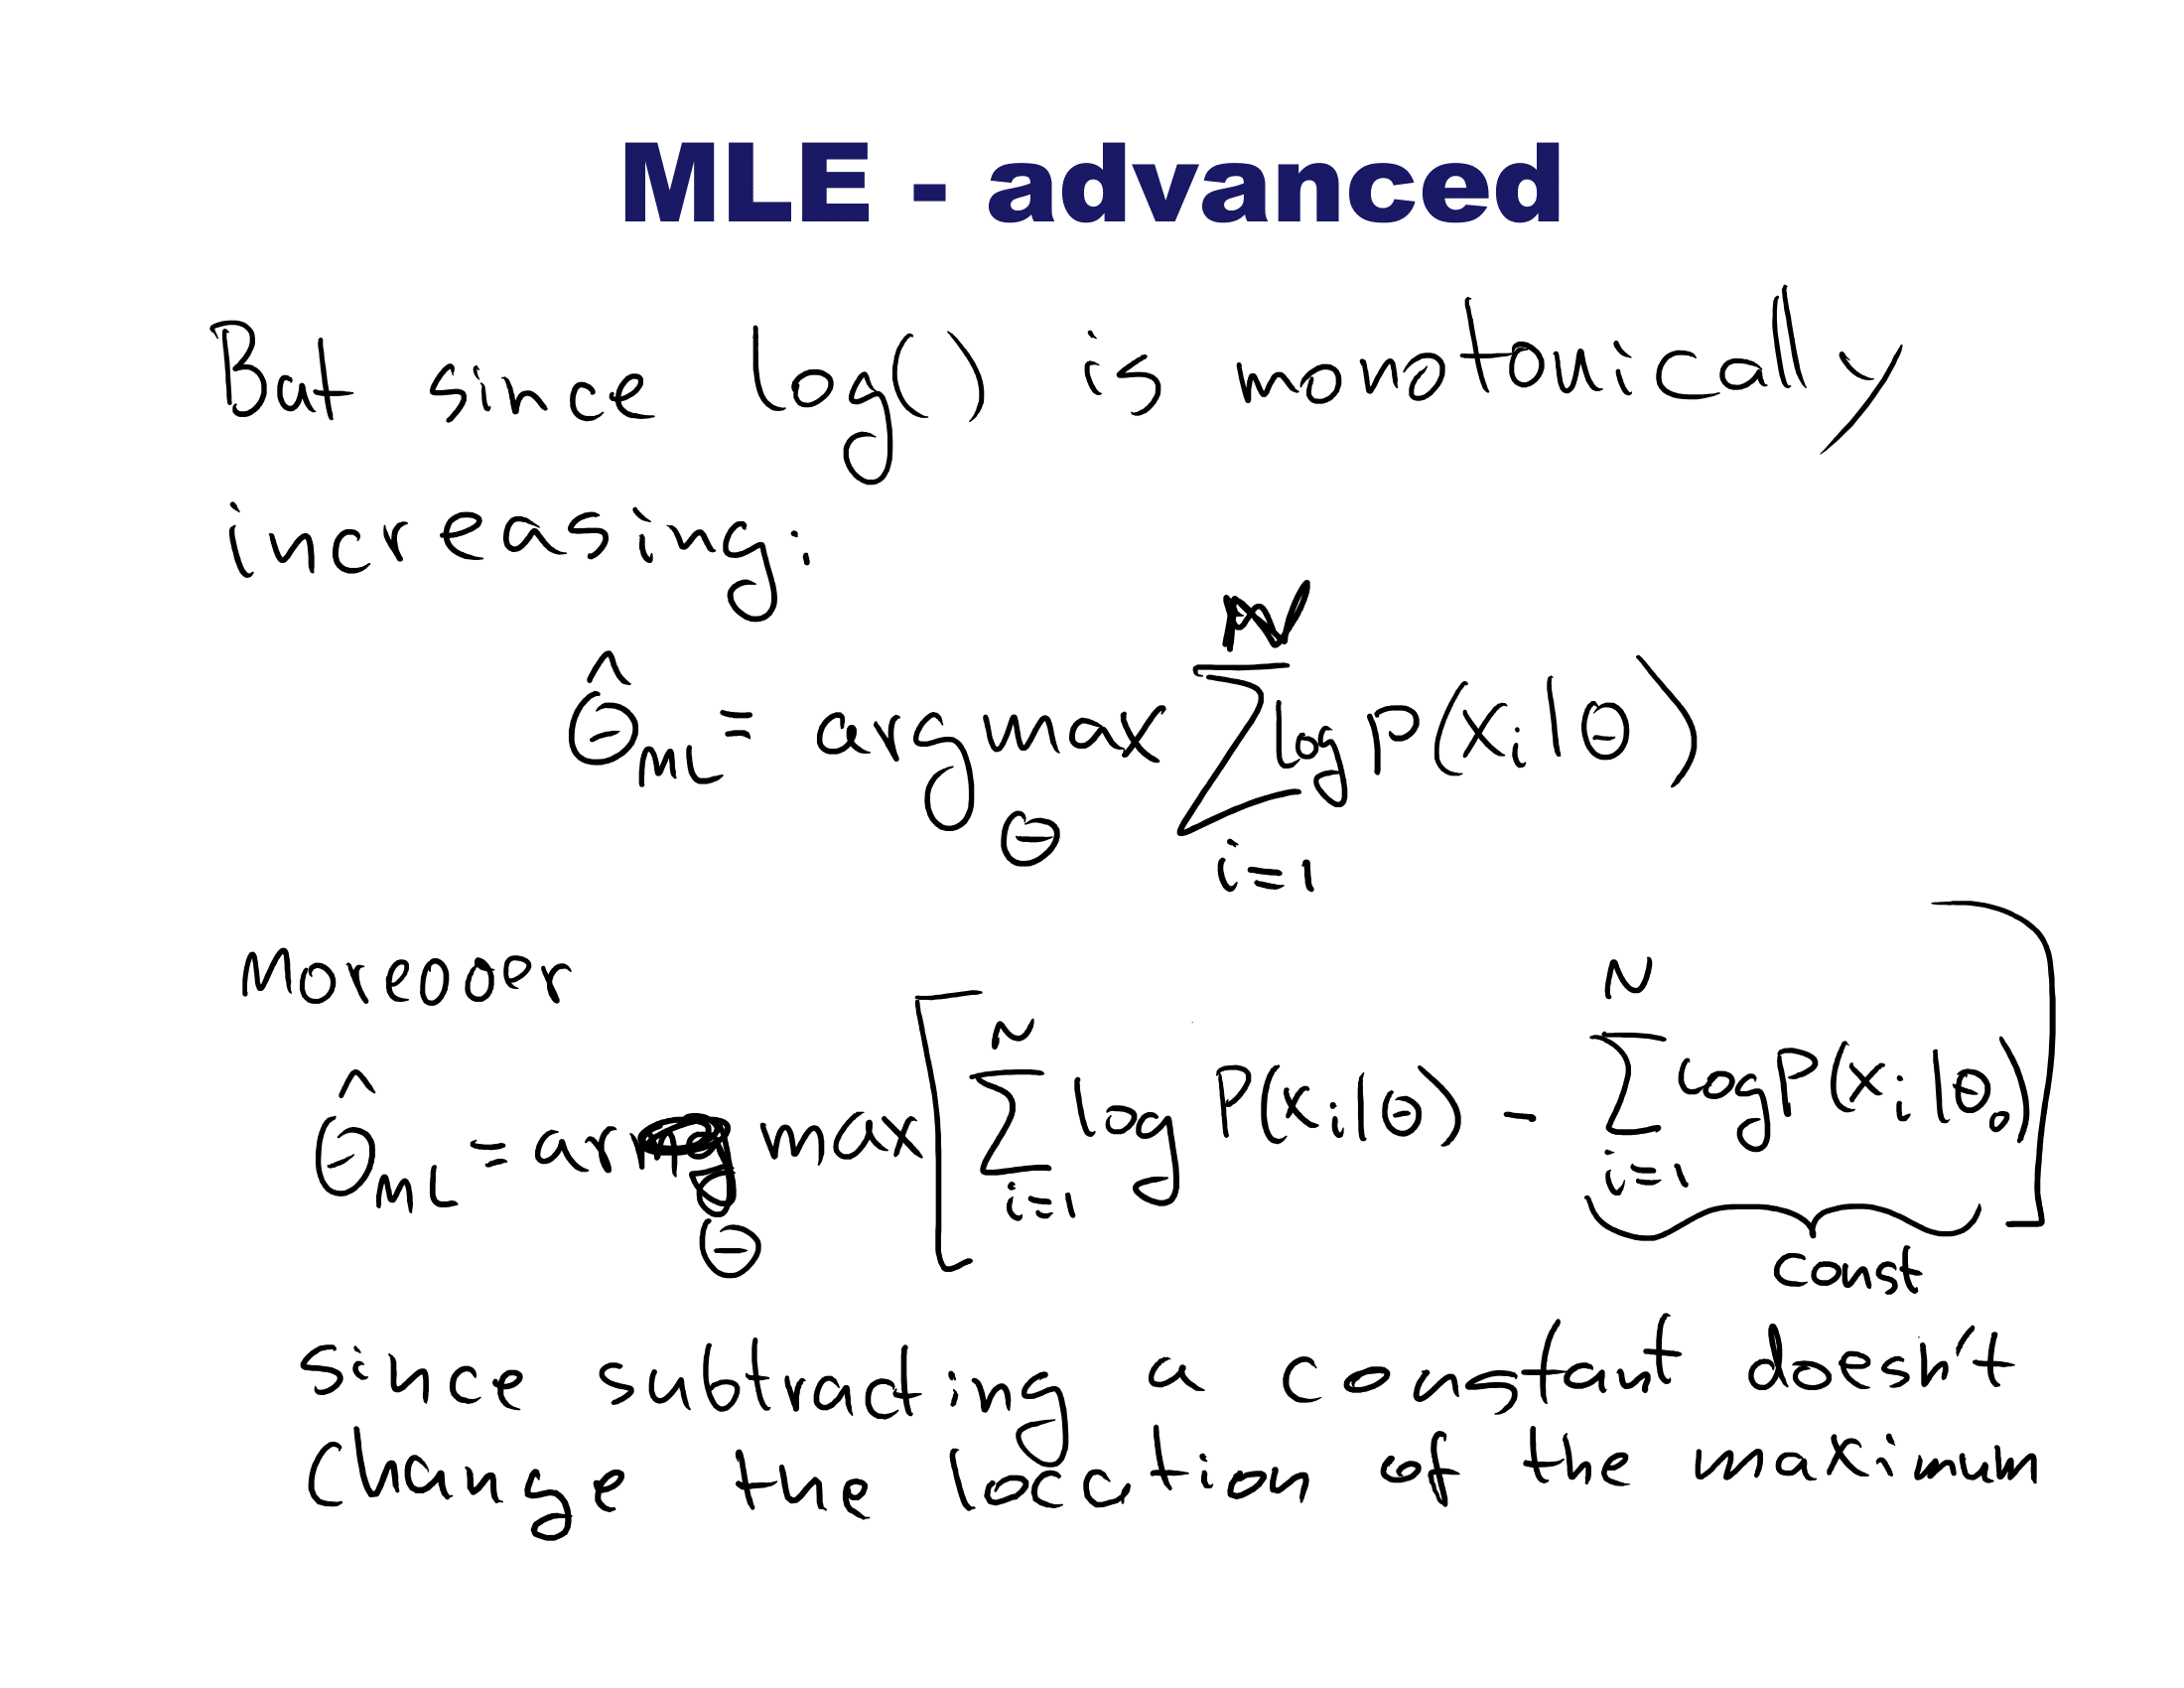 MLE - advanced
But since log() is monotonically
increasing:
θ̂_ML = argmax_θ ∑_{i=1}^{N} log P(x_i|θ)
Moreover
θ̂_ML = arg max_θ [ ∑_{i=1}^{N} log P(x_i|θ) - ∑_{i=1}^{N} log P(x_i|θ_0) ]
const
since subtracting a constant doesn't
change the location of the maximum